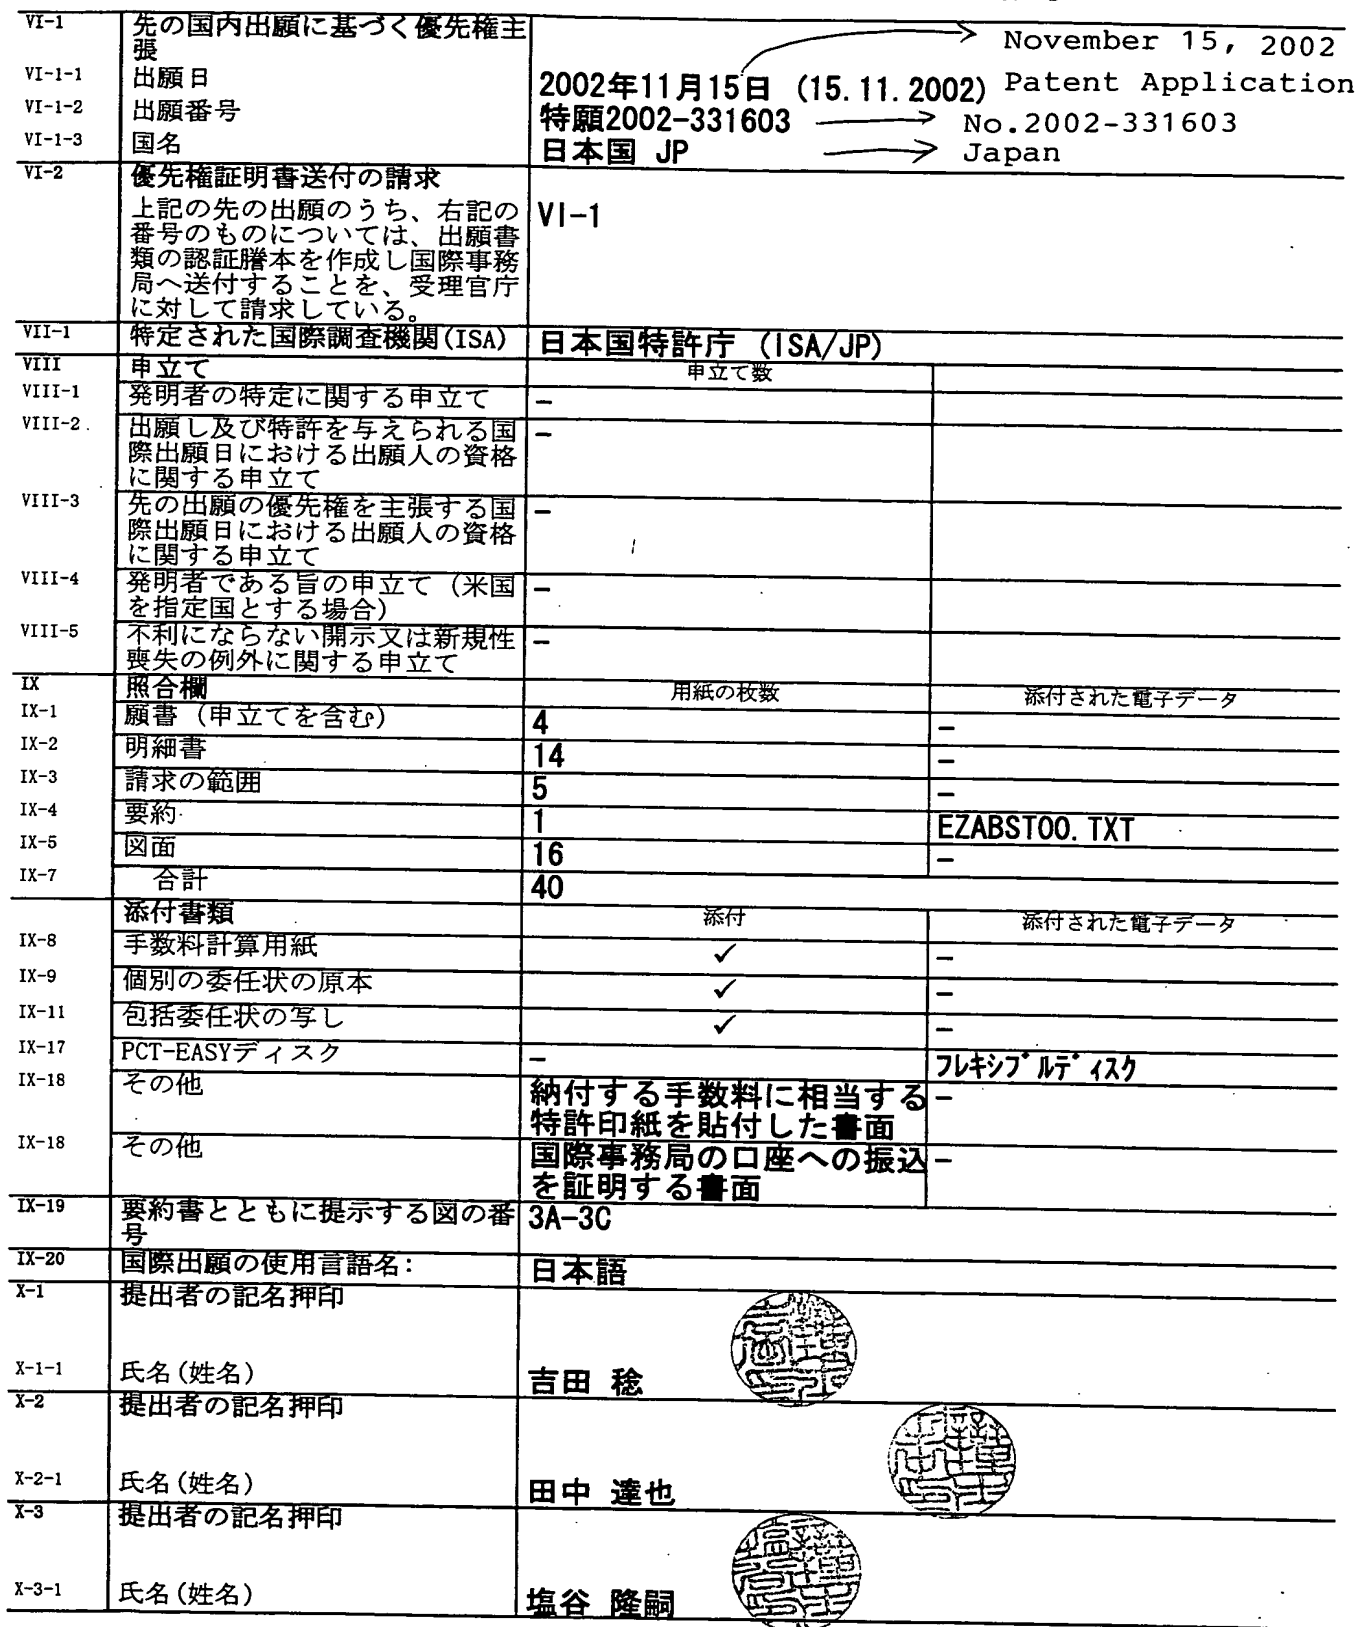 VI-1 先の国内出願に基づく優先権主
張
November 15, 2002
VI-1-1 出願日 2002年11月15日 (15.11.2002) Patent Application
VI-1-2 出願番号 特願2002-331603 No.2002-331603
VI-1-3 国名 日本国 JP Japan
VI-2 優先権証明書送付の請求
上記の先の出願のうち、右記の VI-1
番号のものについては、出願書
類の認証謄本を作成し国際事務
局へ送付することを、受理官庁
に対して請求している。
VII-1 特定された国際調査機関(ISA) 日本国特許庁 (ISA/JP)
VIII 申立て 申立て数
VIII-1 発明者の特定に関する申立て -
VIII-2 出願し及び特許を与えられる国 -
際出願日における出願人の資格
に関する申立て
VIII-3 先の出願の優先権を主張する国 -
際出願日における出願人の資格
に関する申立て
VIII-4 発明者である旨の申立て (米国 -
を指定国とする場合)
VIII-5 不利にならない開示又は新規性 -
喪失の例外に関する申立て
IX 照合欄 用紙の枚数 添付された電子データ
IX-1 願書 (申立てを含む) 4 -
IX-2 明細書 14 -
IX-3 請求の範囲 5 -
IX-4 要約 1 EZABST00.TXT
IX-5 図面 16 -
IX-7 合計 40
添付書類 添付 添付された電子データ
IX-8 手数料計算用紙 ✓ -
IX-9 個別の委任状の原本 ✓ -
IX-11 包括委任状の写し ✓ -
IX-17 PCT-EASYディスク - フレキシブルディスク
IX-18 その他 納付する手数料に相当する -
特許印紙を貼付した書面
IX-18 その他 国際事務局の口座への振込 -
を証明する書面
IX-19 要約書とともに提示する図の番 3A-3C
号
IX-20 国際出願の使用言語名: 日本語
X-1 提出者の記名押印
X-1-1 氏名(姓名) 吉田 稔
X-2 提出者の記名押印
X-2-1 氏名(姓名) 田中 達也
X-3 提出者の記名押印
X-3-1 氏名(姓名) 塩谷 隆嗣